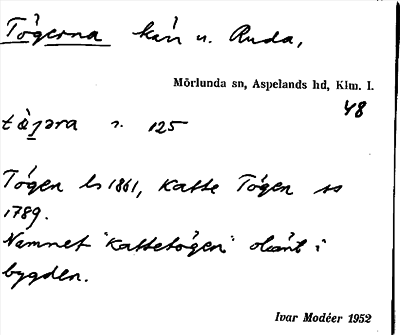 Tógerna kärr u. Ruda,
Mörlunda sn, Aspelands hd, Klm. l.
48
s. 125
Tógen ls 1861, Katte Tógen ss
1789.
Namnet "Kattetógen" okänt i
bygden.
Ivar Modéer 1952